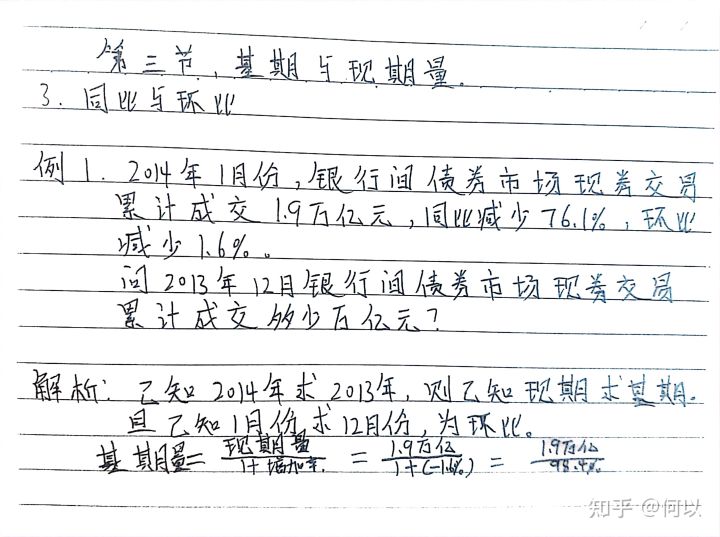 第三节、基期与现期量.
3. 同比与环比
例1. 2014年1月份,银行间债券市场现券交易
累计成交1.9万亿元,同比减少76.1%,环比
减少1.6%。
问2013年12月银行间债券市场现券交易
累计成交多少万亿元?
解析: 已知2014年求2013年,则已知现期求基期.
且已知1月份求12月份,为环比。
基期量= 现期量/1+增加率. = 1.9万亿/1+(-1.6%) = 1.9万亿/98.4%
知乎 @何以